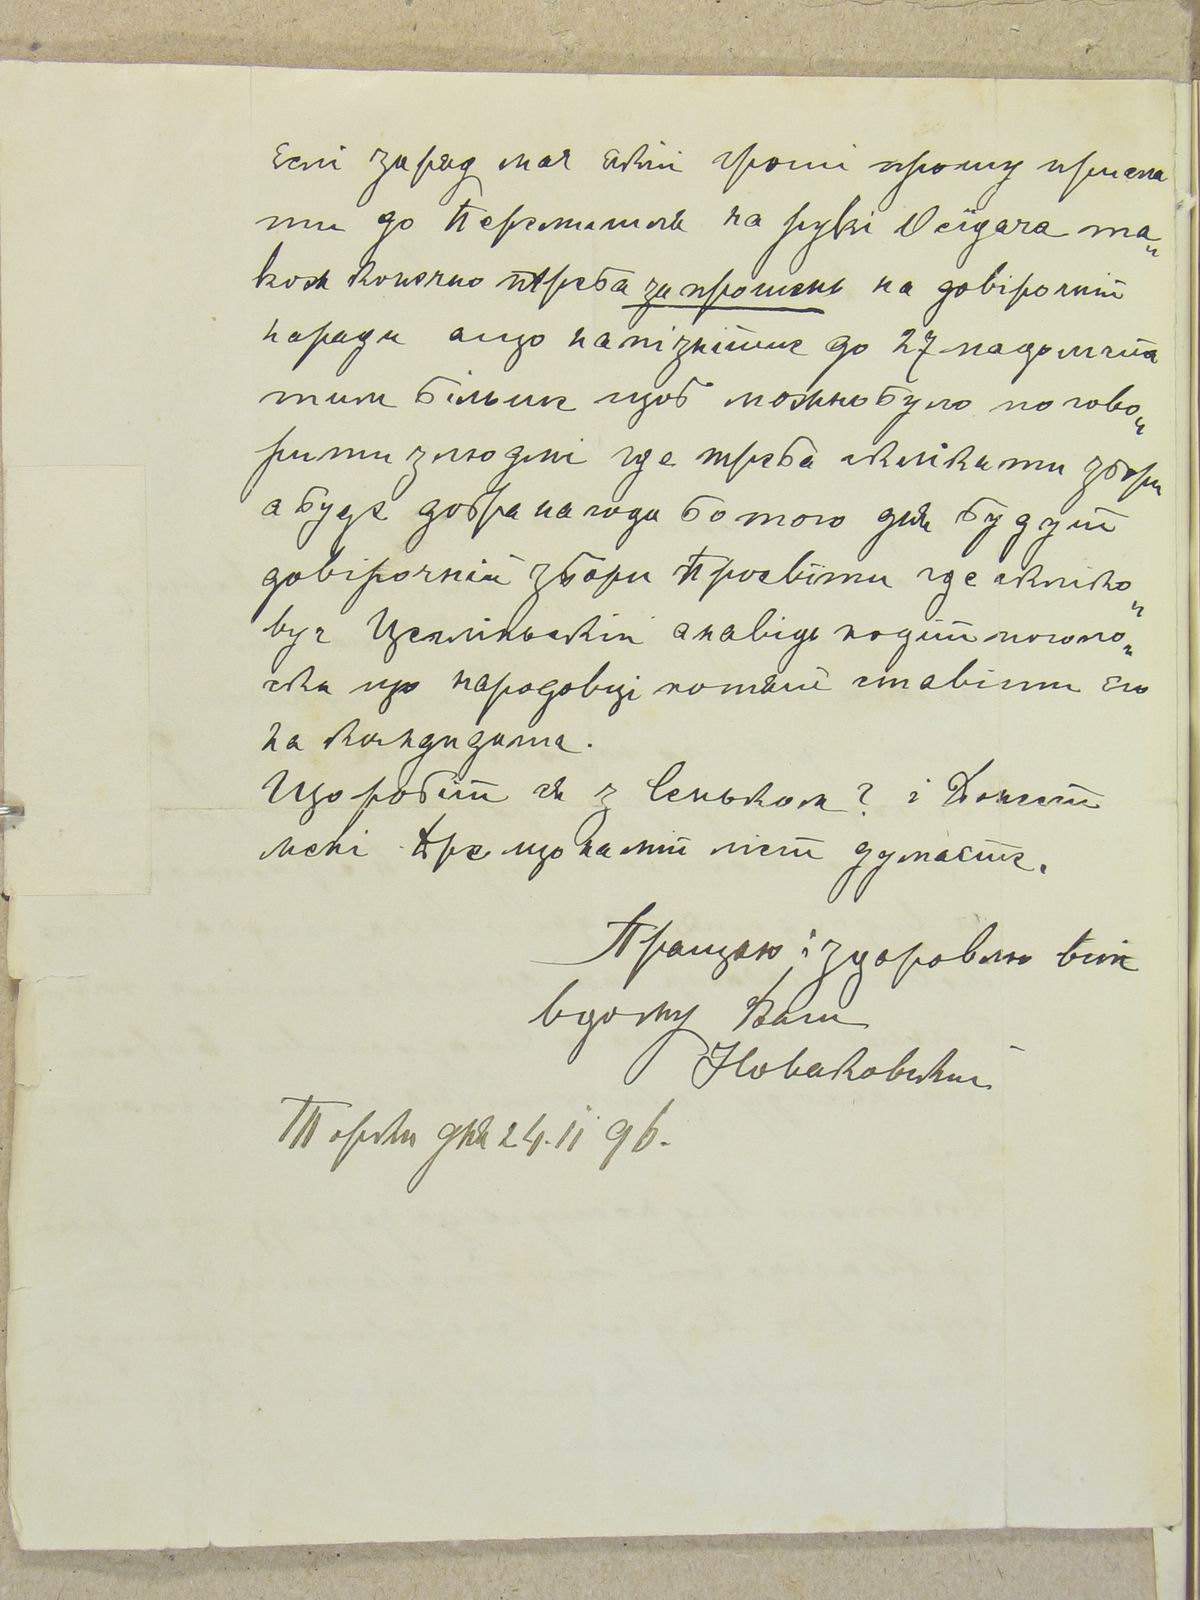 Єслі заряд має якіі гроші прошу присла
ти до Перемишля на руки Осїдача та„
кож конечно треба запрошень на довірочніі
наради а що напізнійше до 27 падолиста
тим більше щоб можно було погово„
рити з людмі где треба скликати збори
а буде добра нагода бо того дня будут
довірочніі збори Просвіти где скліко„
вує Цегліньскій а навідь ходит поголо„
ска що народовці готові ставіти єго
на кандидата.
Що робіт ся з Сеньком? і Донесіт
мені про що на мій лист думаєте.
Працаю і здоровлю всіх
вдому Ваш
Новаковский
Торки дня 24.11 96.